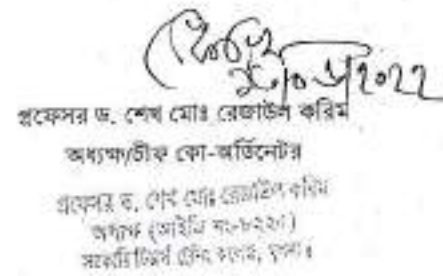 প্রফেসর ড. শেখ মোঃ রেজাউল করিম
অধ্যক্ষ/চীফ কো-অর্ডিনেটর
প্রফেসর ড. শেখ মোঃ রেজাউল করিম
অধ্যক্ষ
সরকারি টিচার্স ট্রেনিং কলেজ, খুলনা।